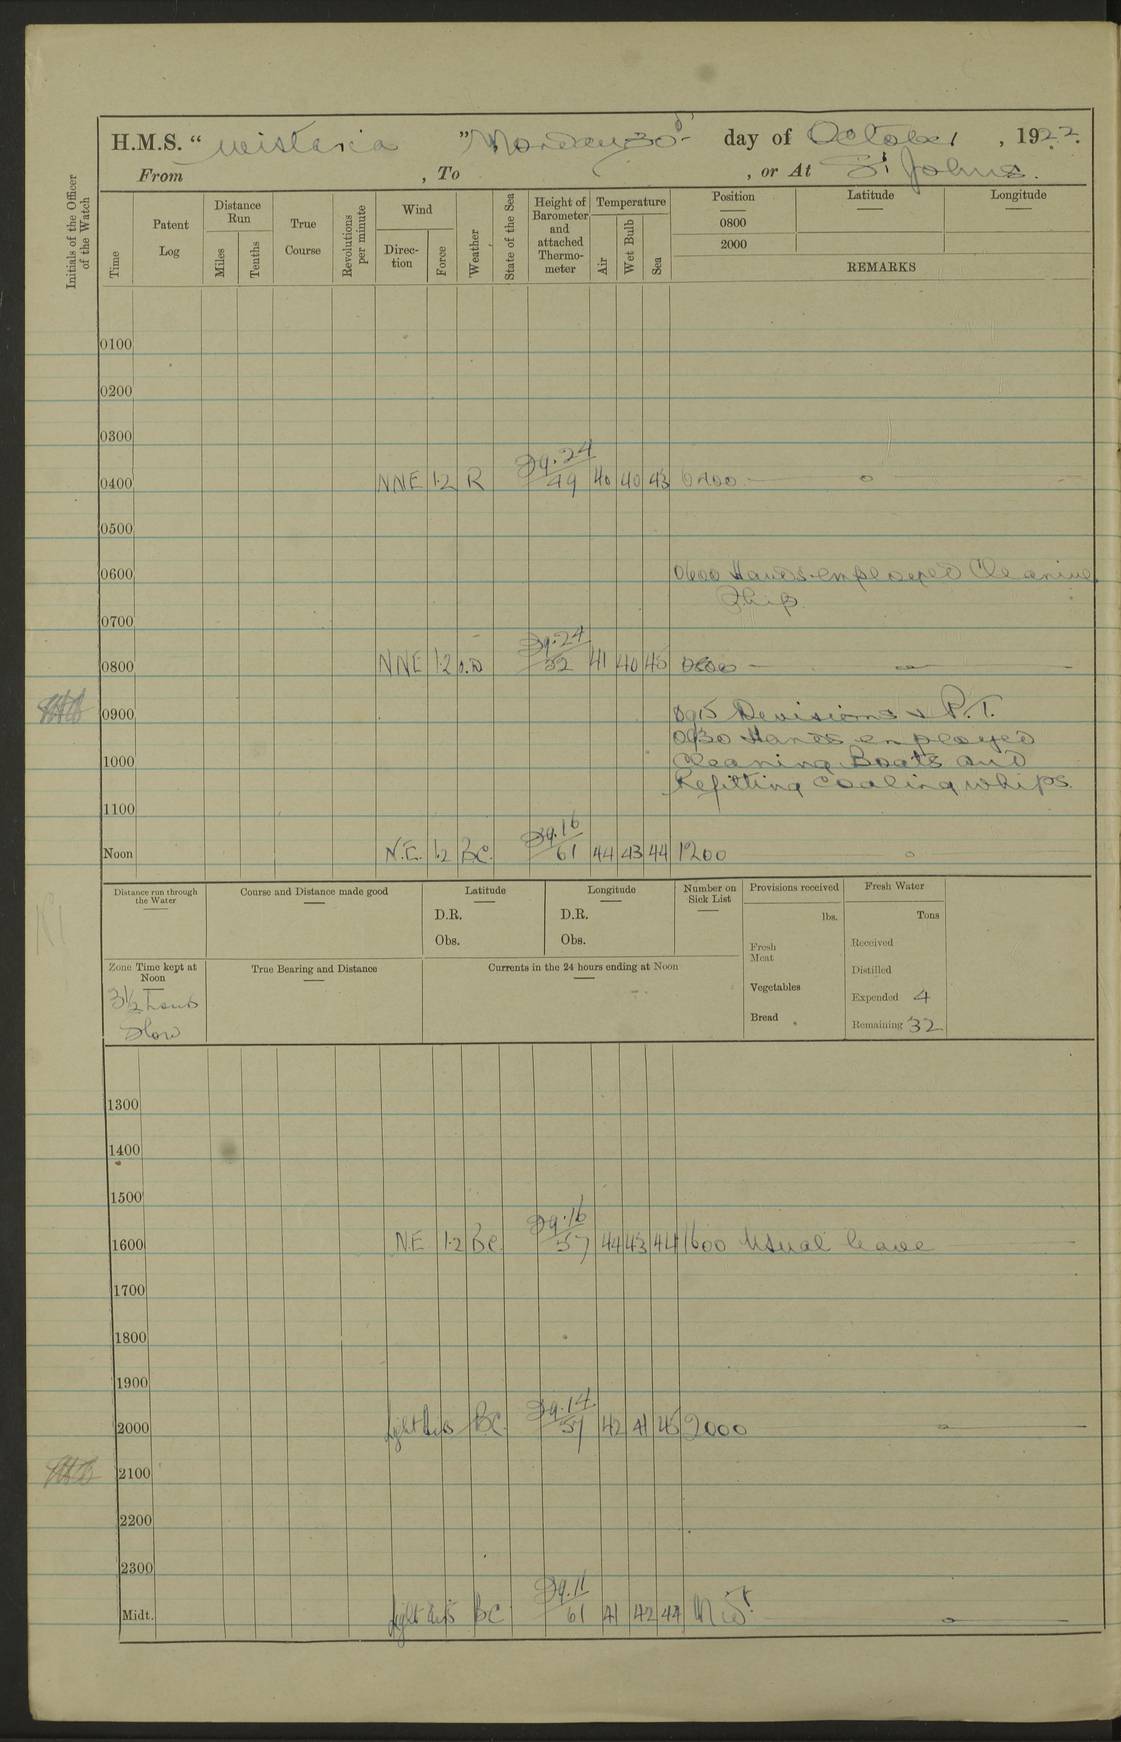 H.M.S. “ Wistaria ” Monday 30th day of October , 1922.
From , To , or At St Johns.
Initials of the Officer of the Watch
Time
Patent Log
Distance Run
Miles
Tenths
True Course
Revolutions per minute
Wind
Direction
Force
Weather
State of the Sea
Height of Barometer and attached Thermometer
Temperature
Air
Wet Bulb
Sea
Position Latitude Longitude
0800
2000
REMARKS
0100
0200
0300
29.24
0400 NNE 1.2 R 49 40 40 43 0400
0500
0600 0600 Hands employed Cleaning
Ship
0700
29.24
0800 NNE 1.2 52 41 40 45 0800
0900 0915 Devisions & P.T.
0930 Hands employed
1000 Cleaning Boats and
Refitting Coaling whips.
1100
29.16
Noon N.E. 1.2 BC. 61 44 43 44 1200
Distance run through the Water
Course and Distance made good
Latitude
D.R.
Obs.
Longitude
D.R.
Obs.
Number on Sick List
Provisions received
lbs.
Fresh Meat
Vegetables
Bread
Fresh Water
Tons
Received
Distilled
Expended 4
Remaining 32
Zone Time kept at Noon
3½ hours
Slow
True Bearing and Distance
Currents in the 24 hours ending at Noon
1300
1400
1500
29.16
1600 N.E 1.2 BC. 57 44 43 44 1600 Usual leave
1700
1800
1900
29.14
2000 light airs BC. 57 42 41 45 2000
2100
2200
2300
29.11
Midt. light airs BC 61 41 42 44 Midt.